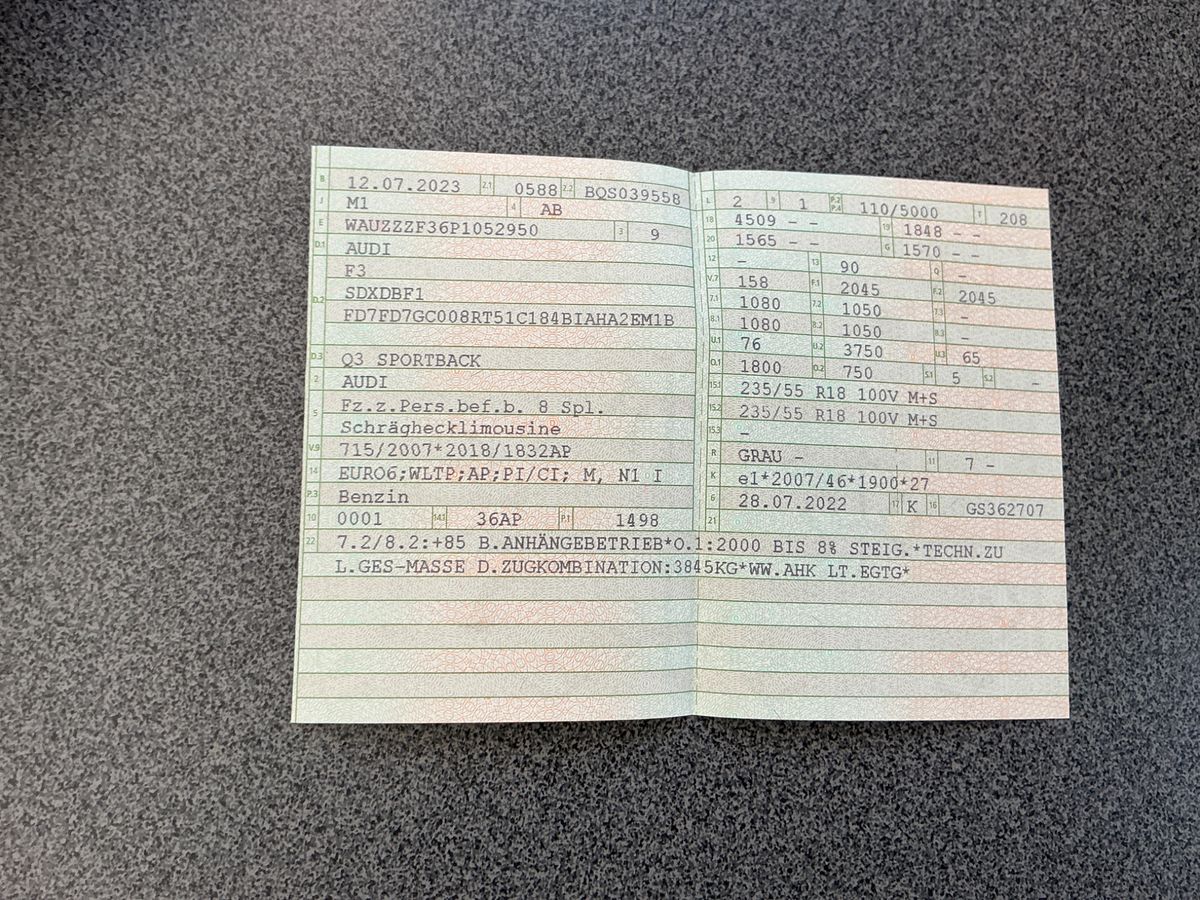 B 12.07.2023 2.1 0588 2.2 BQS039558
J M1 4 AB
E WAUZZZF36P1052950 3 9
D.1 AUDI
F3
D.2 SDXDBF1
FD7FD7GC008RT51C184BIAHA2EM1B
D.3 Q3 SPORTBACK
2 AUDI
5 Fz.z.Pers.bef.b. 8 Spl.
Schräghecklimousine
V.9 715/2007*2018/1832AP
14 EURO6;WLTP;AP;PI/CI; M, N1 I
P.3 Benzin
10 0001 14.1 36AP P.1 1498
L 2 9 1 P.2 P.4 110/5000 T 208
18 4509 - - 19 1848 - -
20 1565 - - G 1570 - -
12 - 13 90 Q -
V.7 158 F.1 2045 F.2 2045
7.1 1080 7.2 1050 7.3 -
8.1 1080 8.2 1050 8.3 -
U.1 76 U.2 3750 U.3 65
O.1 1800 O.2 750 S.1 5 S.2 -
15.1 235/55 R18 100V M+S
15.2 235/55 R18 100V M+S
15.3 -
R GRAU - 11 7 -
K e1*2007/46*1900*27
6 28.07.2022 17 K 16 GS362707
21
22 7.2/8.2:+85 B.ANHÄNGEBETRIEB*O.1:2000 BIS 8% STEIG.*TECHN.ZU
L.GES-MASSE D.ZUGKOMBINATION:3845KG*WW.AHK LT.EGTG*